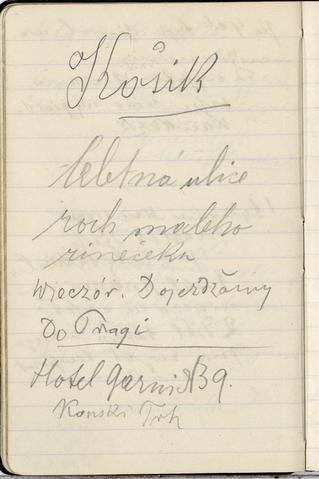 Košik
Celetná ulice
roch maleho
rinečeku
Wieczór. Dojeżdżamy
Do Pragi
Hotel Garni № 9.
Konski Trh